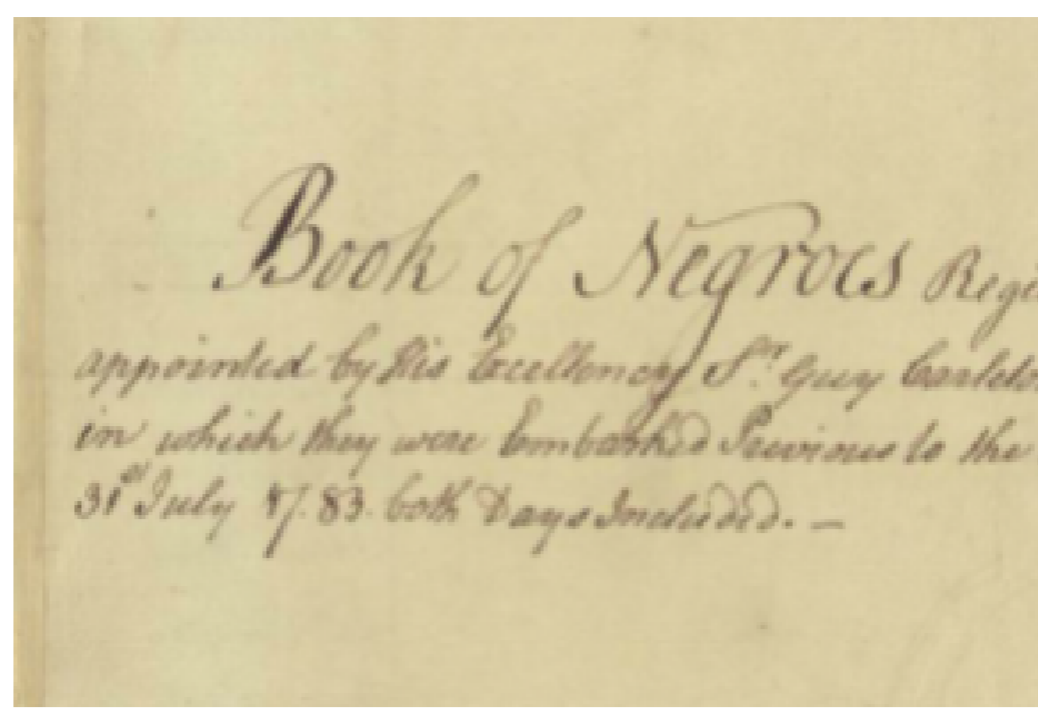 Book of Negroes Regi
appointed by His Excellency Sr. Guy Carleto
in which they were Embarked Previous to the
31st July 17.83. both Days Included. —